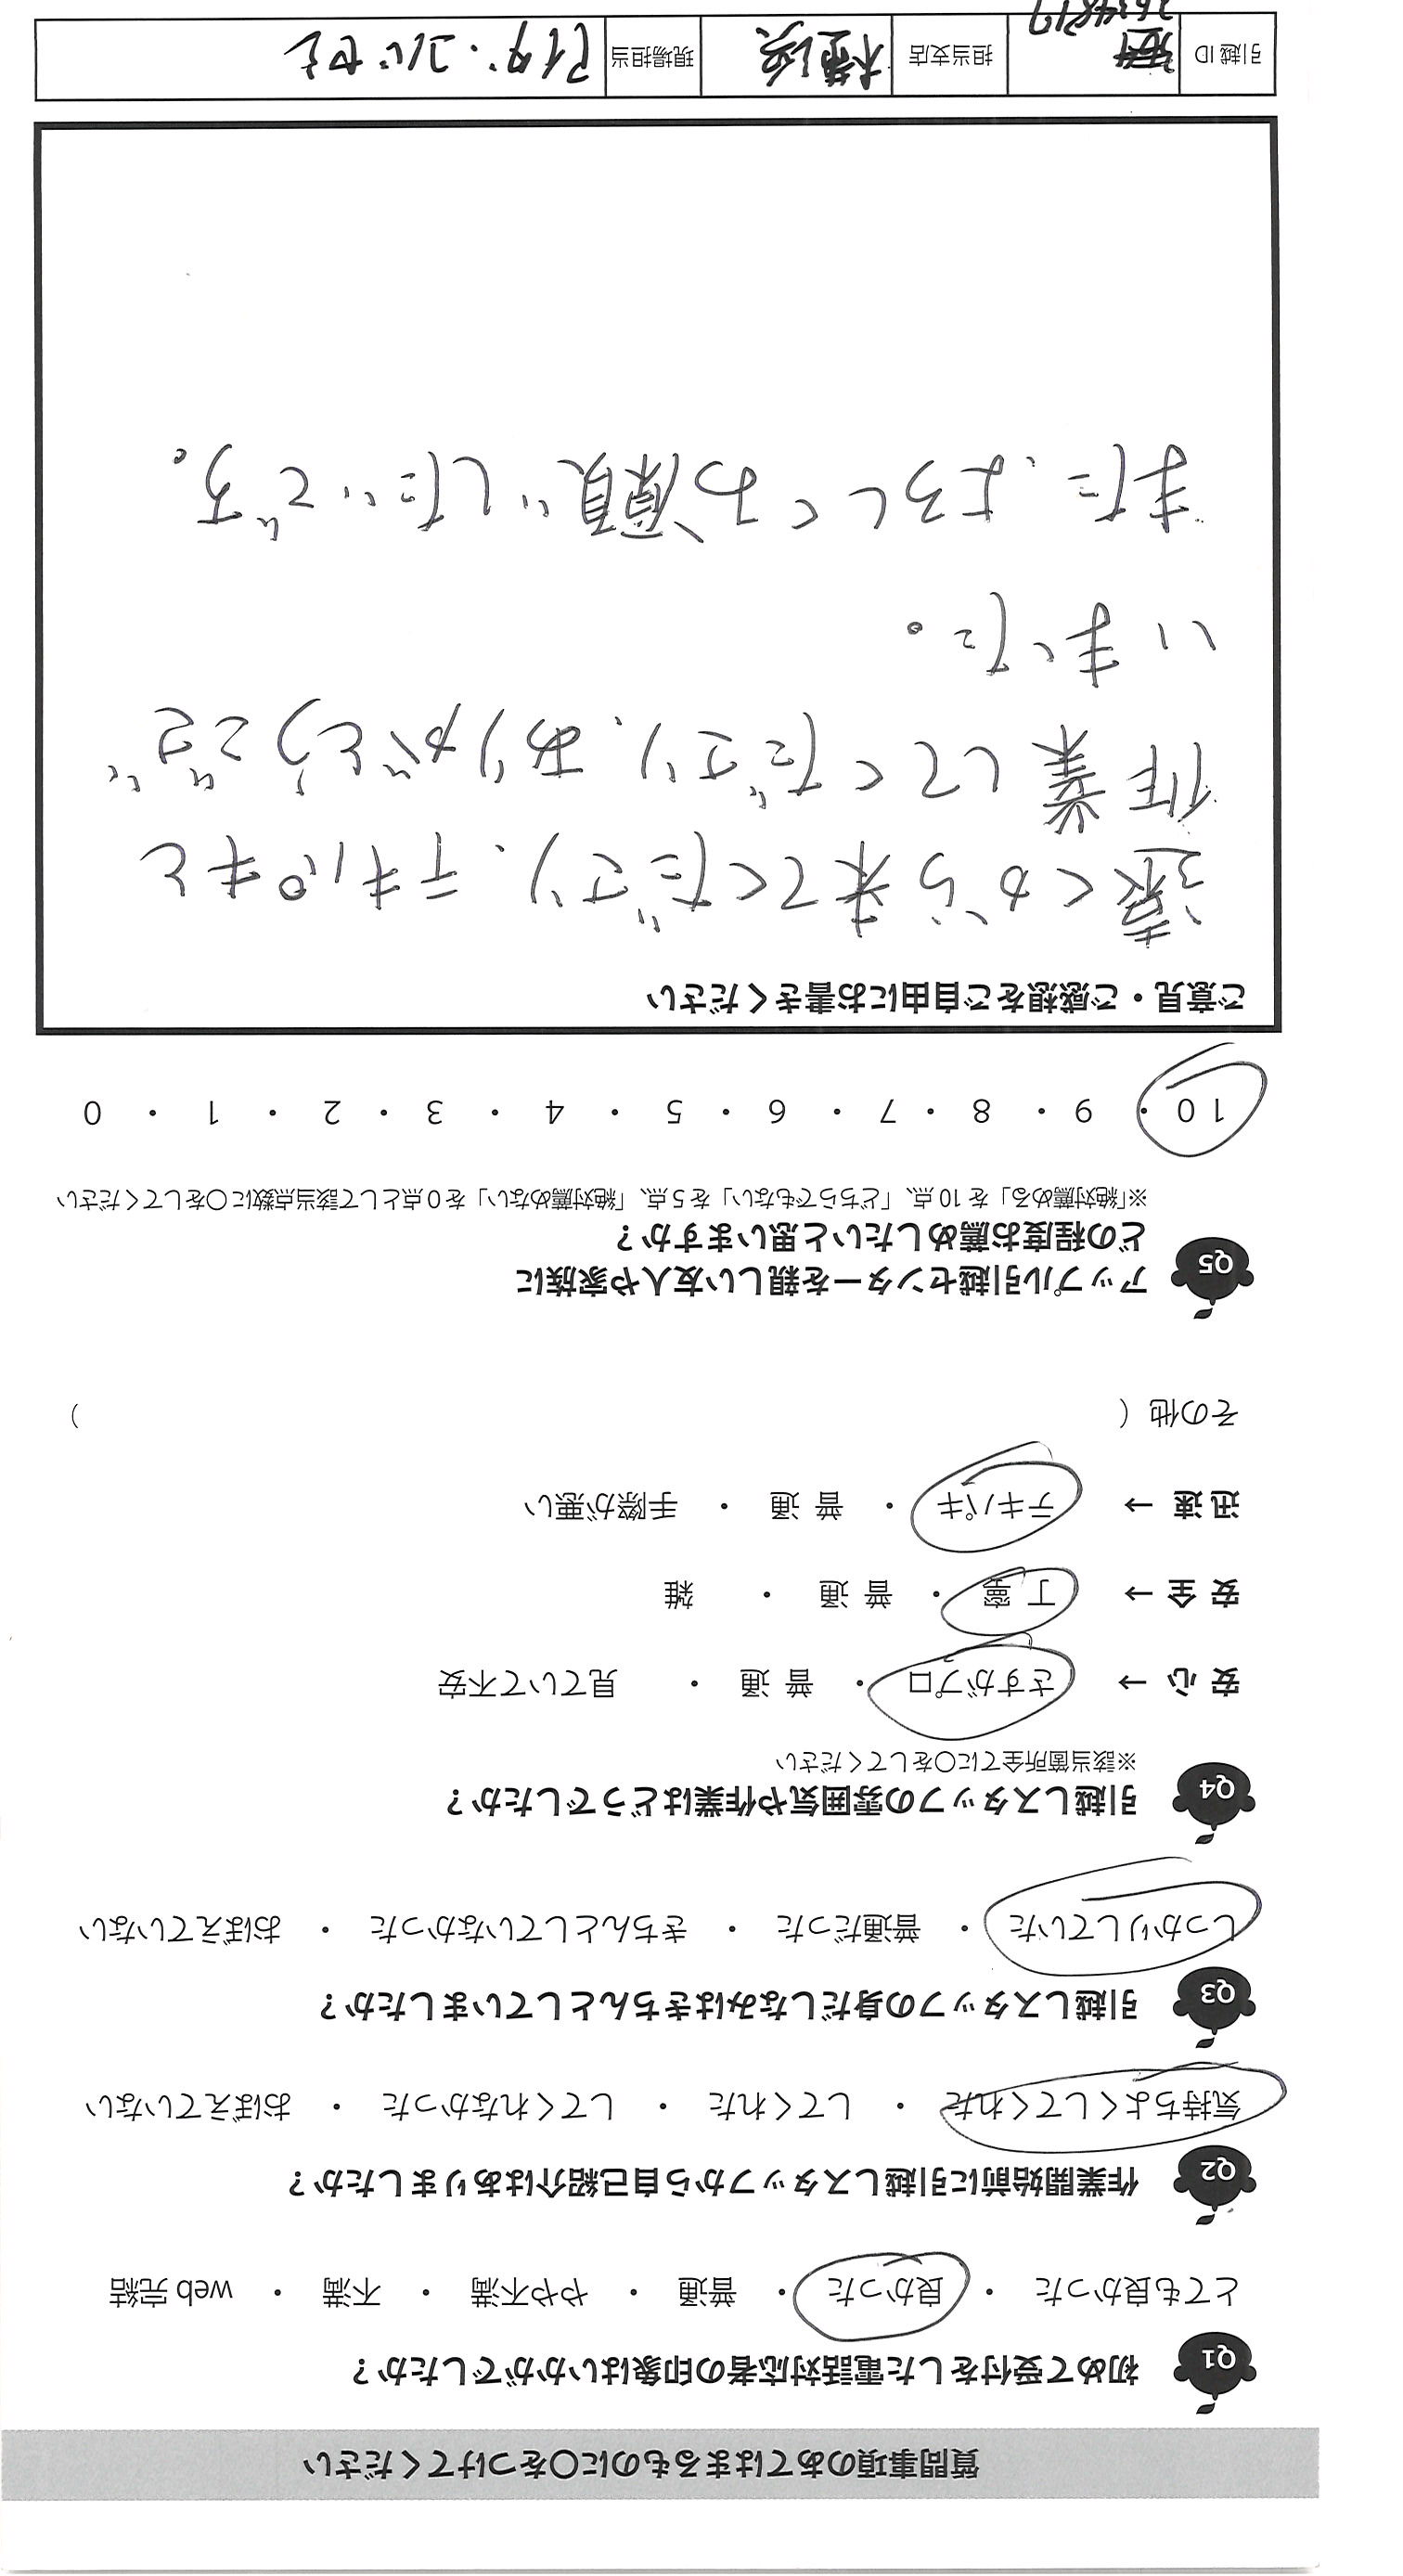 質問事項のあてはまるものに〇をつけてください
Q1 初めて受付をした電話対応者の印象はいかがでしたか？
とても良かった ・ 良かった ・ 普通 ・ やや不満 ・ 不満 ・ web完結
Q2 作業開始前に引越しスタッフから自己紹介はありましたか？
気持ちよくしてくれた ・ してくれた ・ してくれなかった ・ おぼえていない
Q3 引越しスタッフの身だしなみはきちんとしていましたか？
しっかりしていた ・ 普通だった ・ きちんとしていなかった ・ おぼえていない
Q4 引越しスタッフの雰囲気や作業はどうでしたか？
※該当箇所全てに〇をしてください
安心 → さすがプロ ・ 普通 ・ 見ていて不安
安全 → 丁寧 ・ 普通 ・ 雑
迅速 → テキパキ ・ 普通 ・ 手際が悪い
その他（ ）
Q5 アップル引越センターを親しい友人や家族に
どの程度お薦めしたいと思いますか？
※「絶対薦める」を10点、「どちらでもない」を5点、「絶対薦めない」を0点として該当点数に〇をしてください
10 ・ 9 ・ 8 ・ 7 ・ 6 ・ 5 ・ 4 ・ 3 ・ 2 ・ 1 ・ 0
ご意見・ご感想をご自由にお書きください
遠くから来てくださり、テキパキと
作業してくださり、ありがとうござ
いました。
また、よろしくお願いしたいです。
引越ID 担当支店 横浜 現場担当 アイダ・コバセ